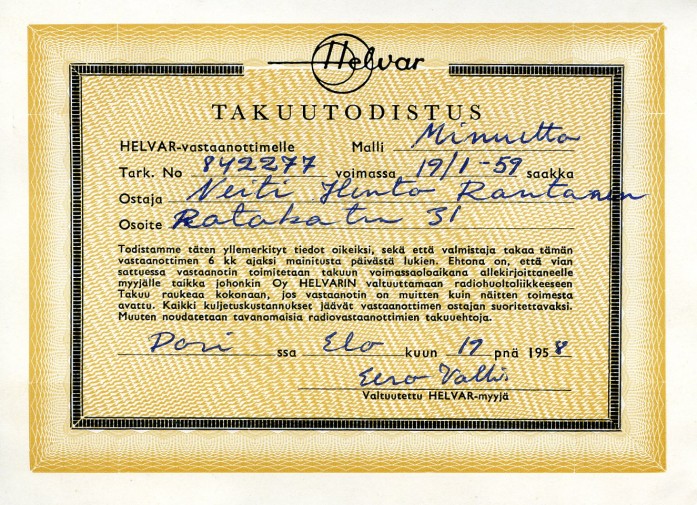 Helvar
TAKUUTODISTUS
HELVAR-vastaanottimelle Malli Minuetto
Tark. No 842277 voimassa 19/1-59 saakka
Ostaja Neiti Rautanen
Osoite Ratakatu 31
Todistamme täten yllemerkityt tiedot oikeiksi, sekä että valmistaja takaa tämän
vastaanottimen 6 kk ajaksi mainitusta päivästä lukien. Ehtona on, että vian
sattuessa vastaanotin toimitetaan takuun voimassaoloaikana allekirjoittaneelle
myyjälle taikka johonkin Oy HELVARIN valtuuttamaan radiohuoltoliikkeeseen
Takuu raukeaa kokonaan, jos vastaanotin on muitten kuin näitten toimesta
avattu. Kaikki kuljetuskustannukset jäävät vastaanottimen ostajan suoritettavaksi.
Muuten noudatetaan tavanomaisia radiovastaanottimien takuuehtoja.
Pori ssa Elo kuun 19 pnä 1958
Eero
Valtuutettu HELVAR-myyjä